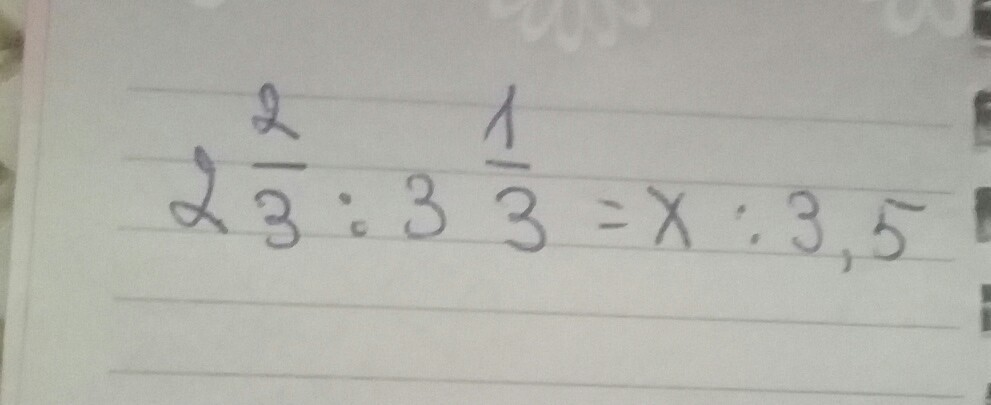 2 2/3 : 3 1/3 = x : 3,5